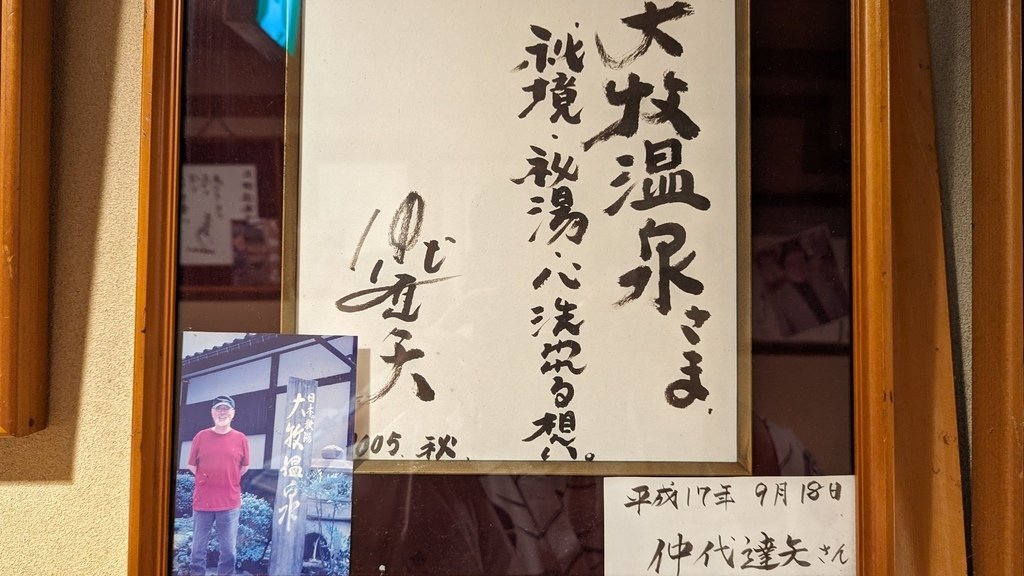 大牧温泉さま
秘境.秘湯.心洗われる想い。
仲代達矢
2005.秋.
大牧温泉
平成17年 9月18日
仲代達矢さん